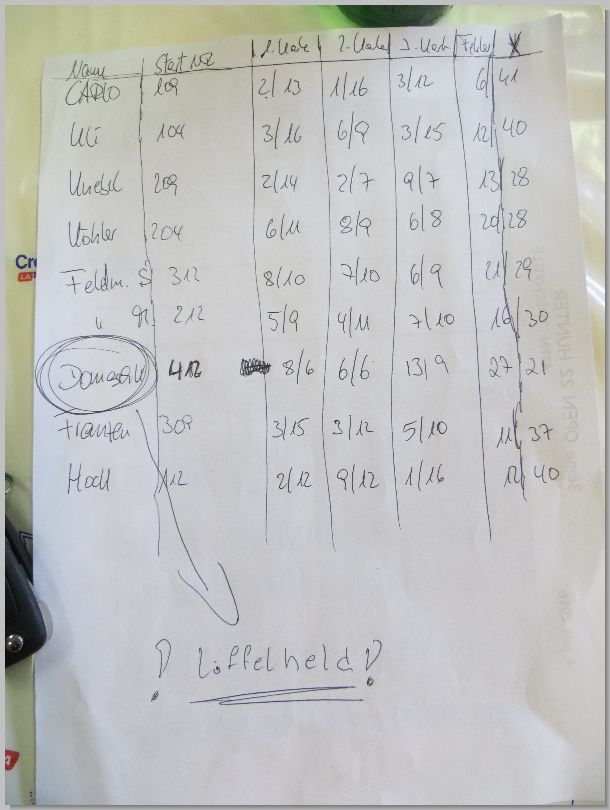 Name Start Nr 1. 2. 3. Fehler X
CARLO 109 2/13 1/16 3/12 6/41
Uli 104 3/16 6/9 3/15 12/40
209 2/14 2/7 9/7 13/28
Köhler 204 6/11 8/9 6/8 20/28
Feldm. S 312 8/10 7/10 6/9 21/29
" 212 5/9 4/11 7/10 16/30
412 8/6 6/6 13/9 27/21
309 3/15 3/12 5/10 11/37
112 2/12 9/12 1/16 12/40
! Löffelheld !
3ème OPEN 22 HUNTER
2016
Cre
LA